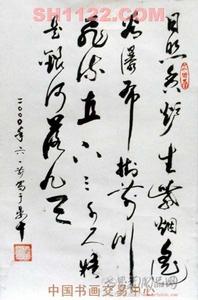 SH1122.COM
日照香炉生紫烟遥
看瀑布挂前川
飞流直下三千尺疑
是银河落九天
二〇〇〇年六
中国书画交易中心